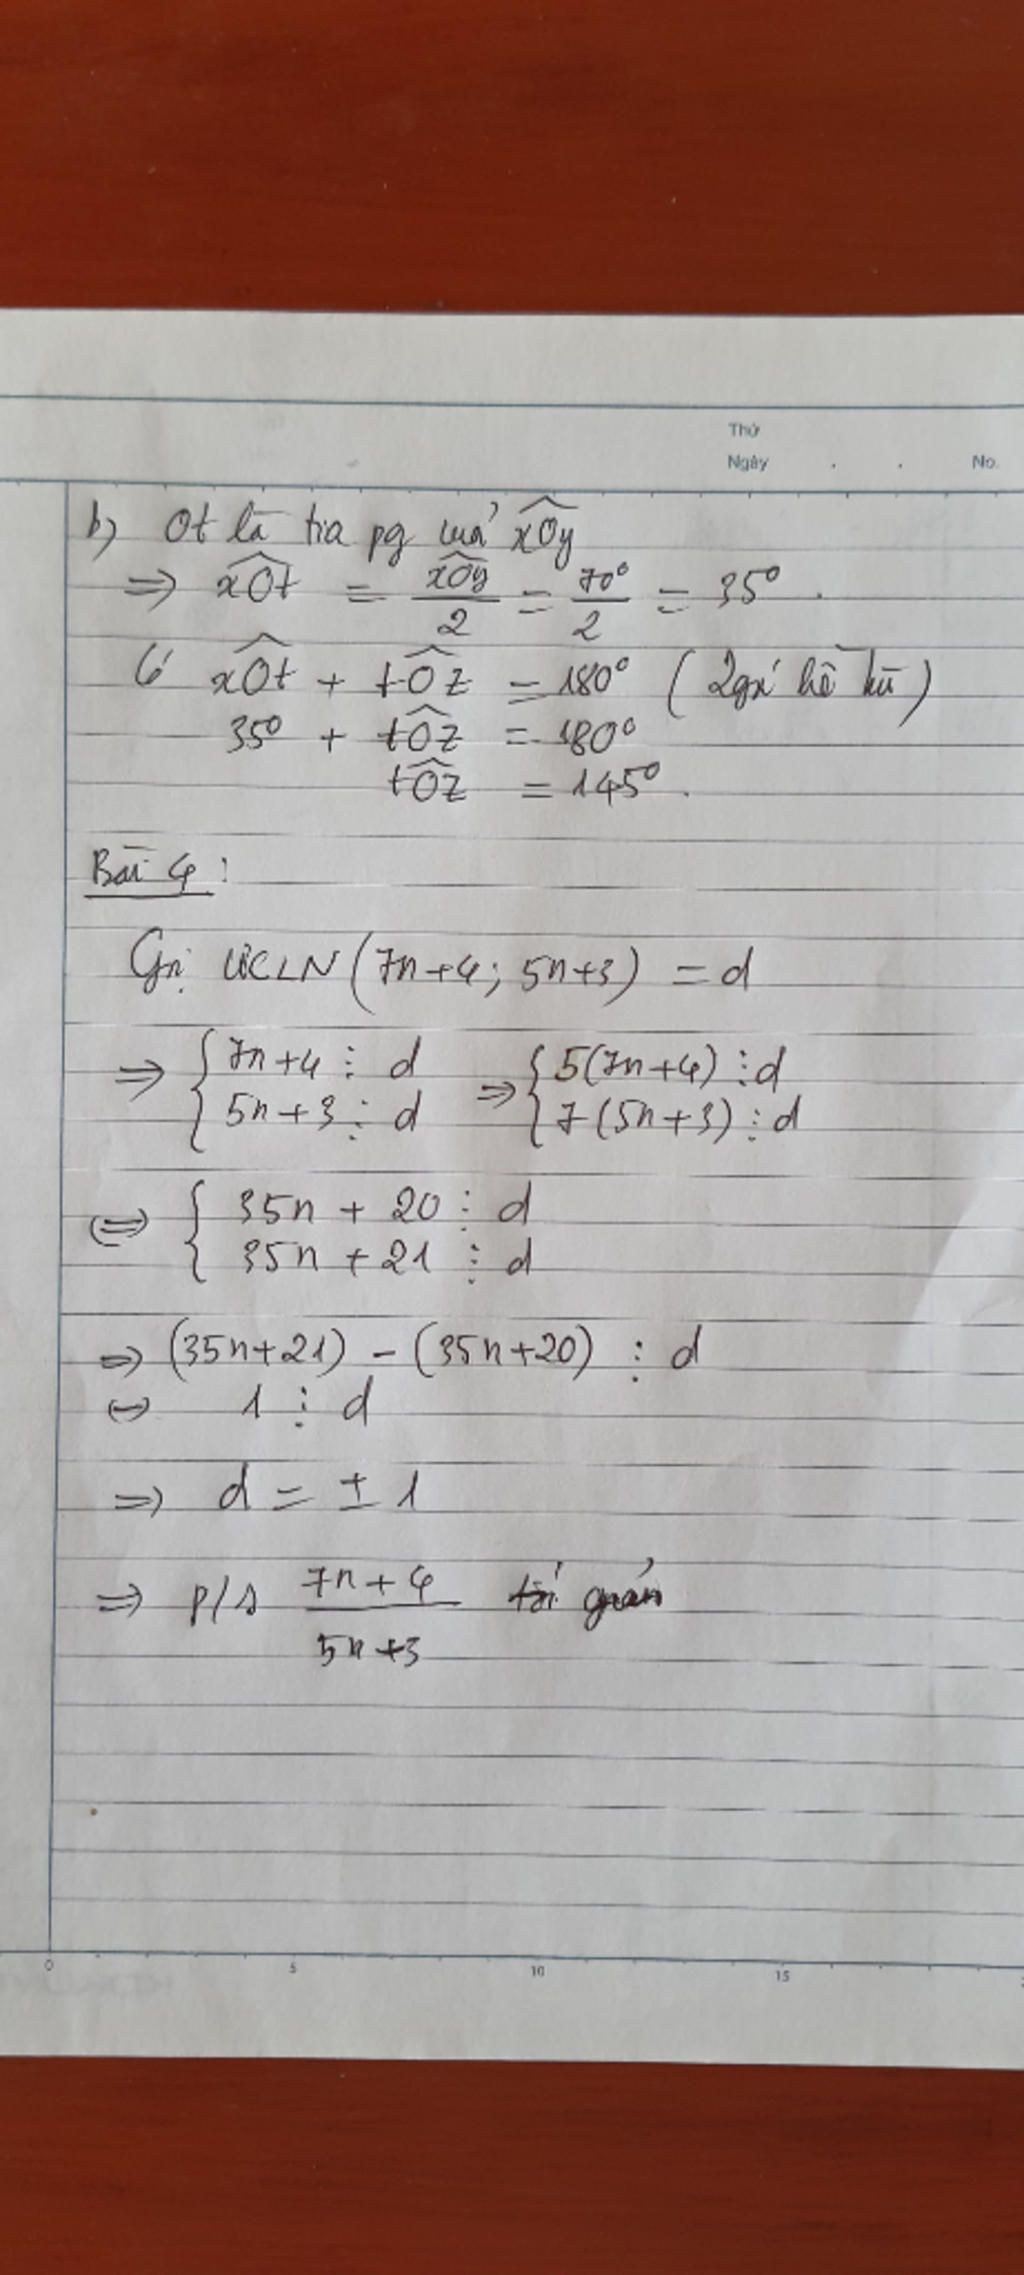 Thứ
Ngày . . No.
b) Ot là tia pg của xOy
⇒ xOt = xOy/2 = 70°/2 = 35°.
Có xOt + tOz = 180° (2 góc kề bù)
35° + tOz = 180°
tOz = 145°.
Bài 4:
Gọi ƯCLN(7n+4; 5n+3) = d
⇒ { 7n+4 ⋮ d ⇒ { 5(7n+4) ⋮ d
5n+3 ⋮ d 7(5n+3) ⋮ d
⇔ { 35n + 20 ⋮ d
35n + 21 ⋮ d
⇒ (35n+21) - (35n+20) ⋮ d
⇔ 1 ⋮ d
⇒ d = ± 1
⇒ p/s 7n+4/5n+3 tối giản
0 5 10 15